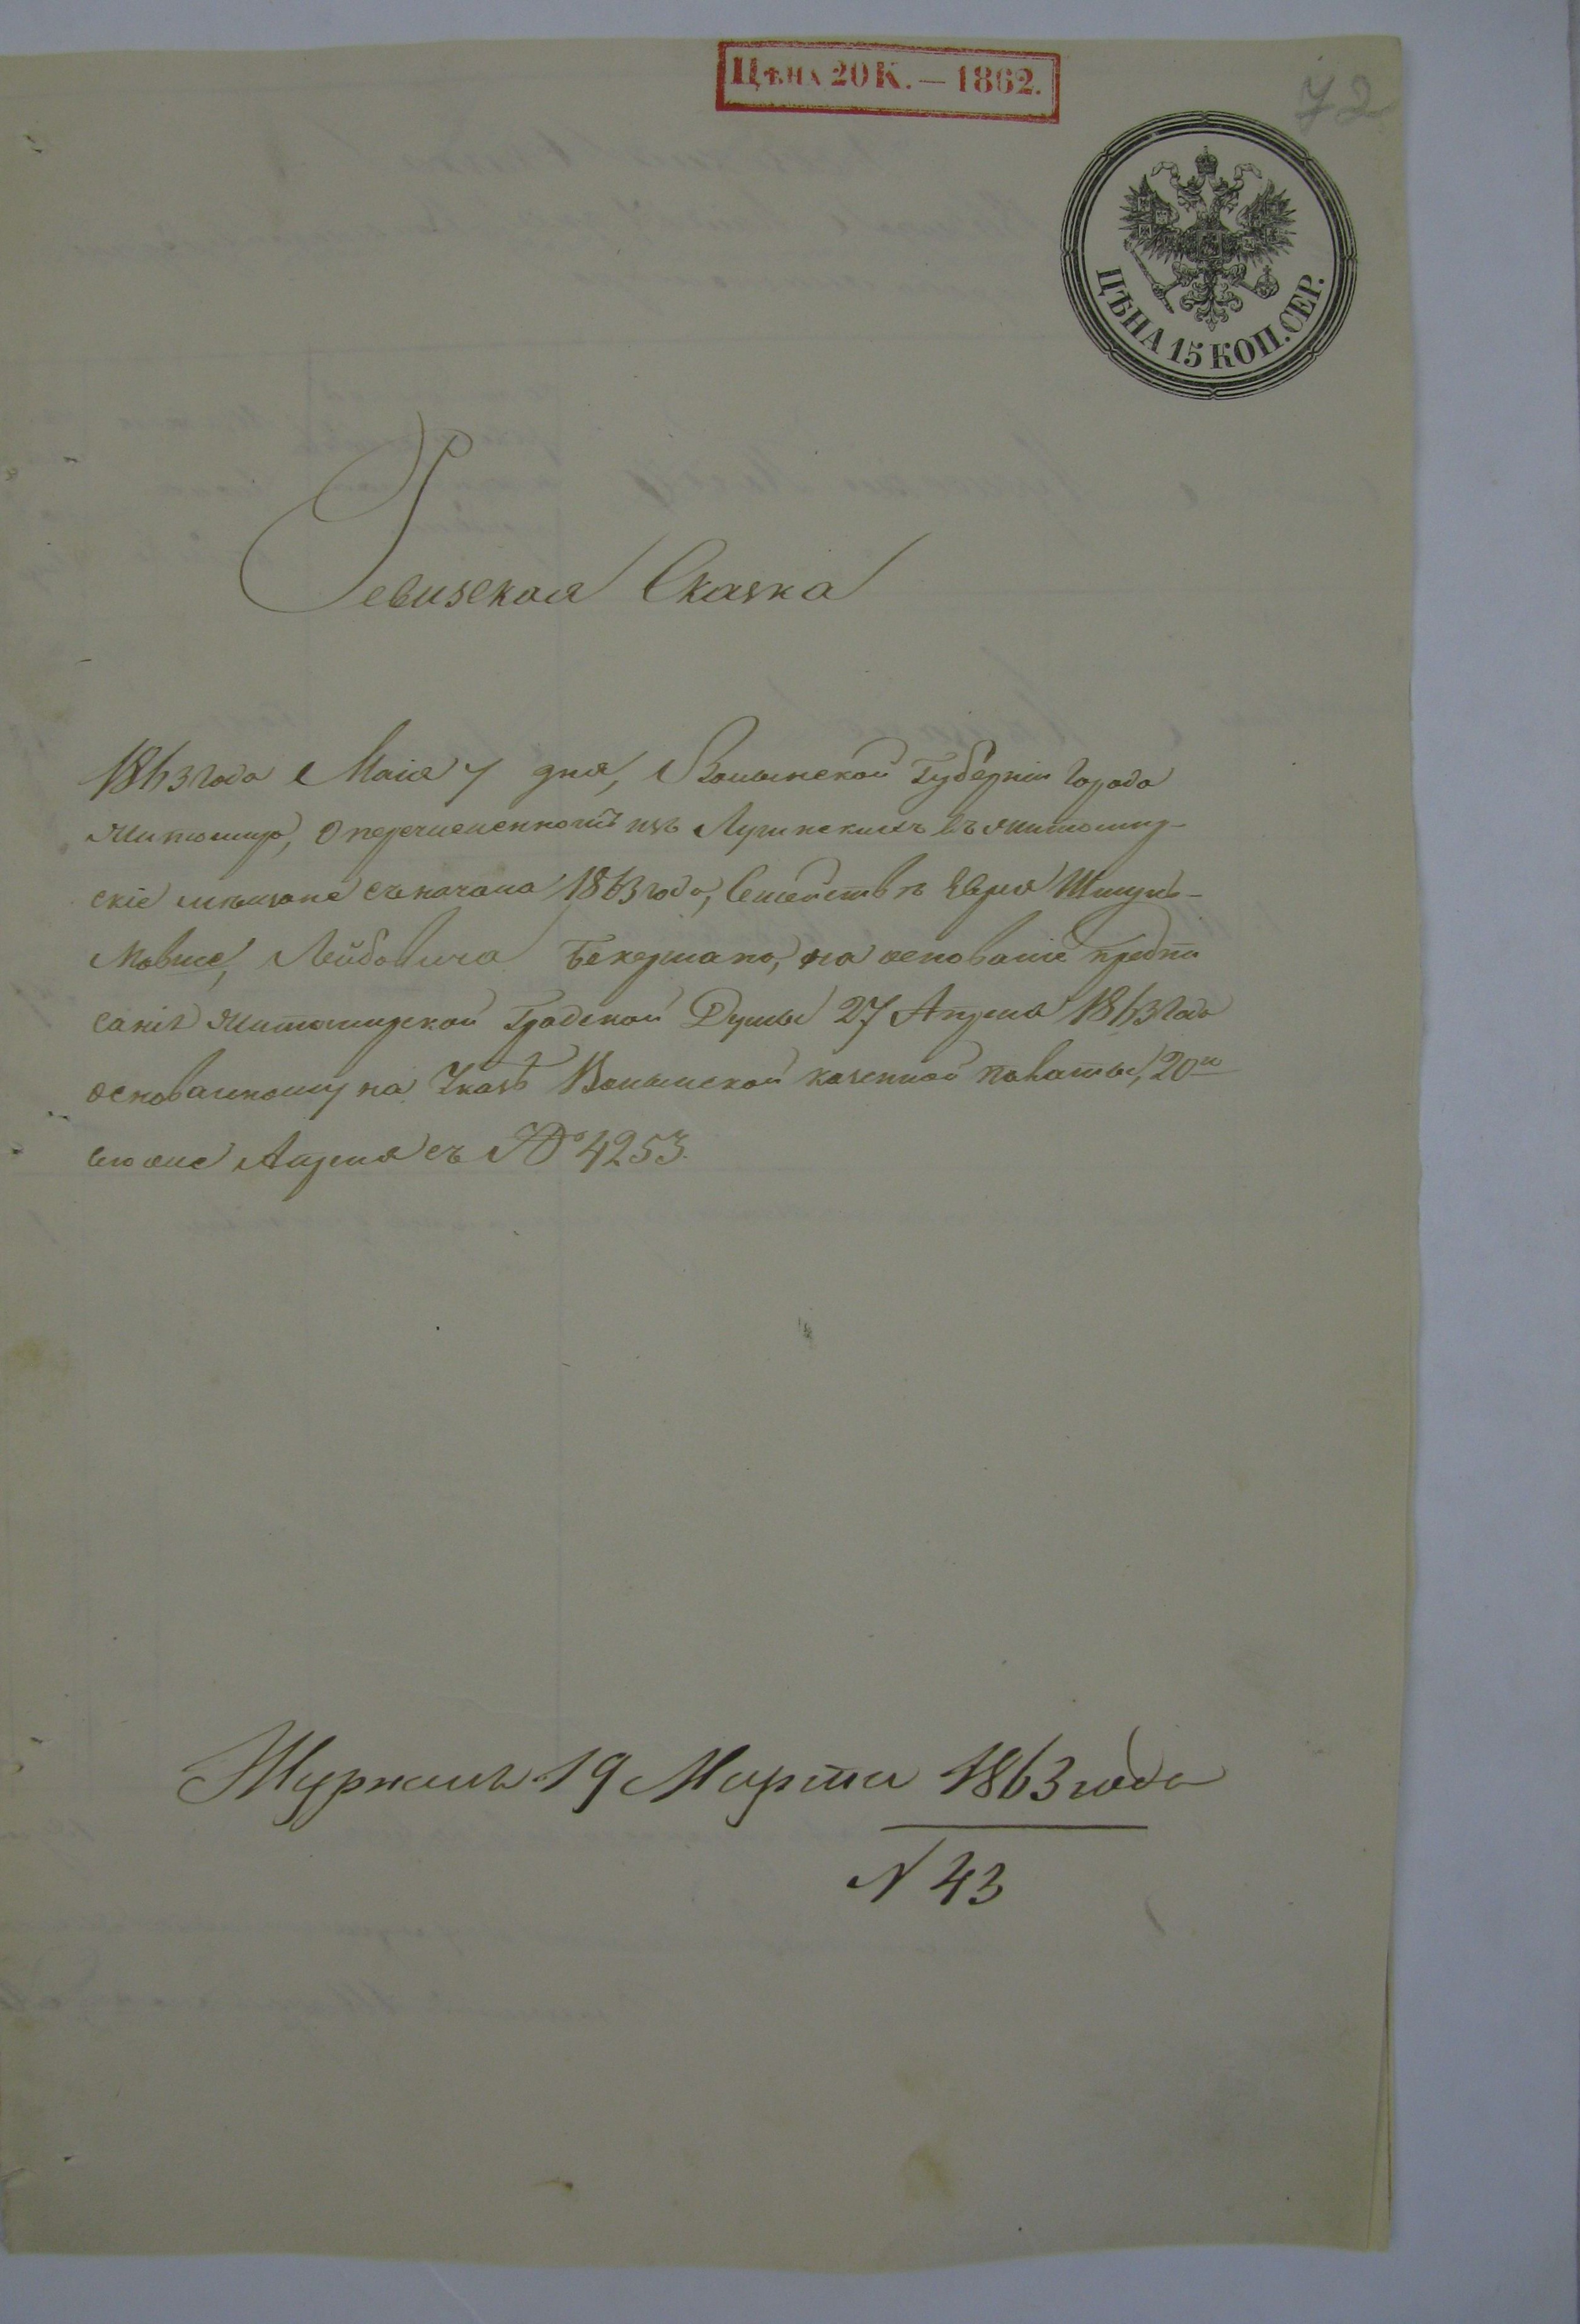 Цѣна 20 К. — 1862.
72
ЦѢНА 15 КОП. СЕР.
Ревизская Сказка
1863 года Маія 7 дня, Волынской Губерніи Города
Житомира, о перечисленномъ изъ Лугинскихъ въ Житомир-
скіе мѣщане съ начала 1863 года, Семействѣ Еврея Шмуль-
Мовше, Лейбовича Бекермана, на основаніе предпи
санія Житомирской Градской Думы 27 Апреля 1863 года
основанному на Указѣ Волынской казенной палаты, 20го
сего же Апреля съ № 4253.
Журналъ 19 Марта 1863 года
N 43